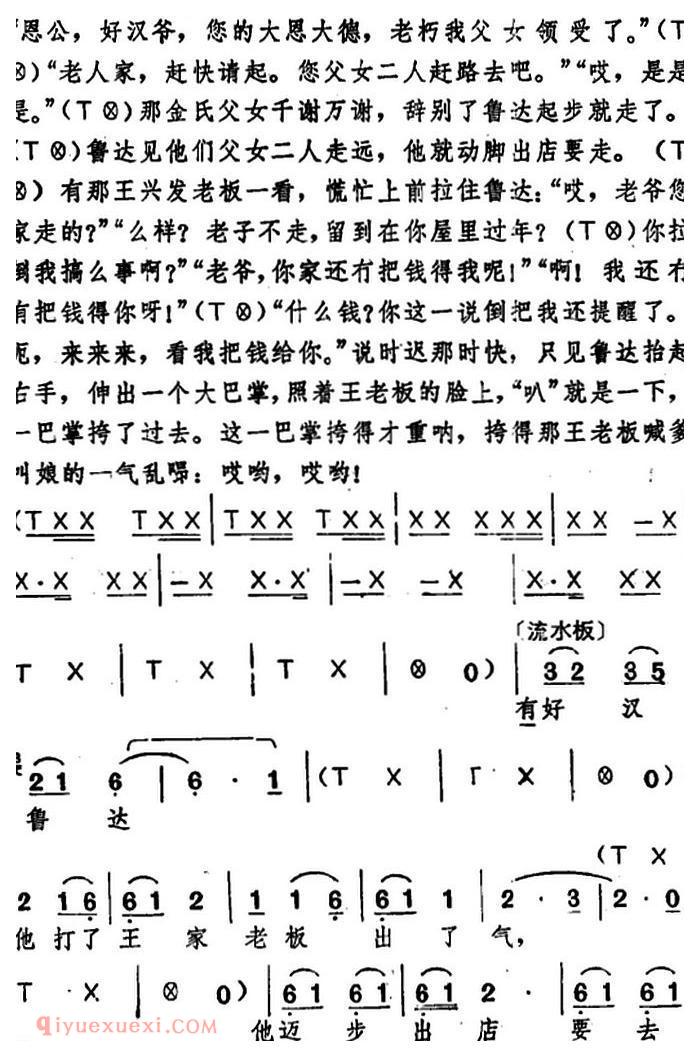 “恩公，好汉爷，您的大恩大德，老朽我父女领受了。”（T
⊗）“老人家，赶快请起。您父女二人赶路去吧。”“哎，是是
是。”（T ⊗）那金氏父女千谢万谢，辞别了鲁达起步就走了。
（T ⊗）鲁达见他们父女二人走远，他就动脚出店要走。（T
⊗）有那王兴发老板一看，慌忙上前拉住鲁达：“哎，老爷您
家走的？”“么样？老子不走，留到在你屋里过年？（T ⊗）你拉
倒我搞么事啊？”“老爷，你家还冇把钱得我呢！”“啊！我还冇
有把钱得你呀！”（T ⊗）“什么钱？你这一说倒把我还提醒了。
呃，来来来，看我把钱给你。”说时迟那时快，只见鲁达抬起
右手，伸出一个大巴掌，照着王老板的脸上，“叭”就是一下，
一巴掌挎了过去。这一巴掌挎得才重呐，挎得那王老板喊爹
叫娘的一气乱嗥：哎哟，哎哟！
（T X X T X X | T X X T X X | X X X X X | X X — X
X · X X X | — X X · X | — X — X | X · X X X
〔流水板〕
T X | T X | T X | ⊗ 0） | 3 2 3 5
有好 汉
2 1 6 | 6 · 1 | （T X | T X | ⊗ 0）
鲁 达
（T X
2 1 6 | 6 1 2 | 1 1 6 | 6 1 1 | 2 · 3 | 2 · 0
他 打了 王 家 老 板 出 了 气，
T X | ⊗ 0） | 6 1 6 1 | 6 1 2 · | 6 1 6 1
他迈 步 出 店 要 去
qiyuexuexi.com